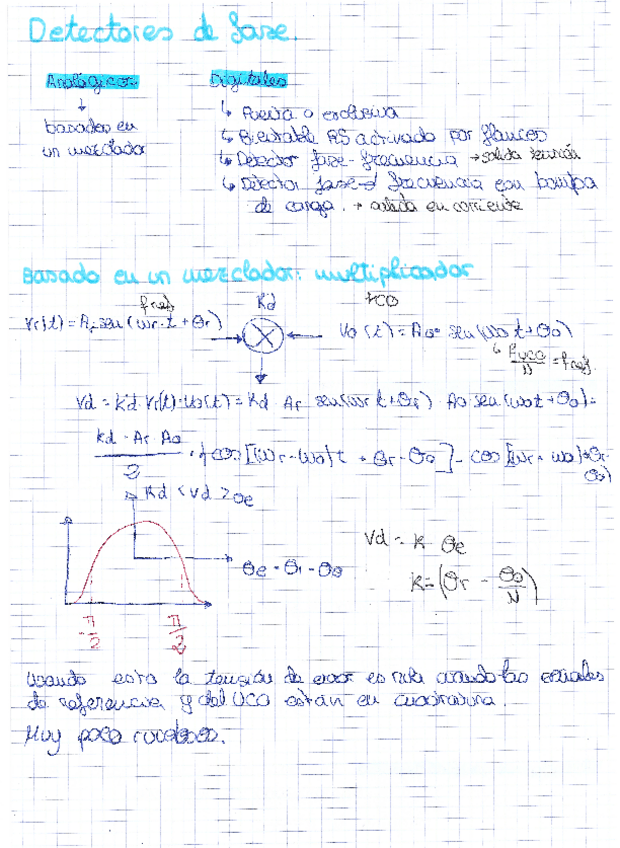 Detectores de fase.
Analógicos Digitales
↓
basados en
un mezclador
↳ Puerta o exclusiva
↳ Biestable RS activado por flancos
↳ Detector fase-frecuencia → salida tensión
↳ Detector fase-frecuencia con bomba
de carga. → salida en corriente
Basado en un mezclador: multiplicador
fref Kd VCO
Vr(t) = Ar sen(wr·t + θr) Vo(t) = Ao· sen(wo t + θo)
↳ Fvco/N = fref
Vd = Kd·Vr(t)·Vo(t) = Kd · Ar sen(wr t + θr) · Ao sen(wot + θo) =
Kd · Ar · Ao / 2 · cos[(wr - wo)t + θr - θo] - cos
Kd < Vd > θe
θe = θr - θo
Vd = K θe
K = (θr - θo/N)
-π/2 π/2
Usando esto la tensión de error es nula cuando las señales
de referencia y del VCO están en cuadratura.
Muy poco